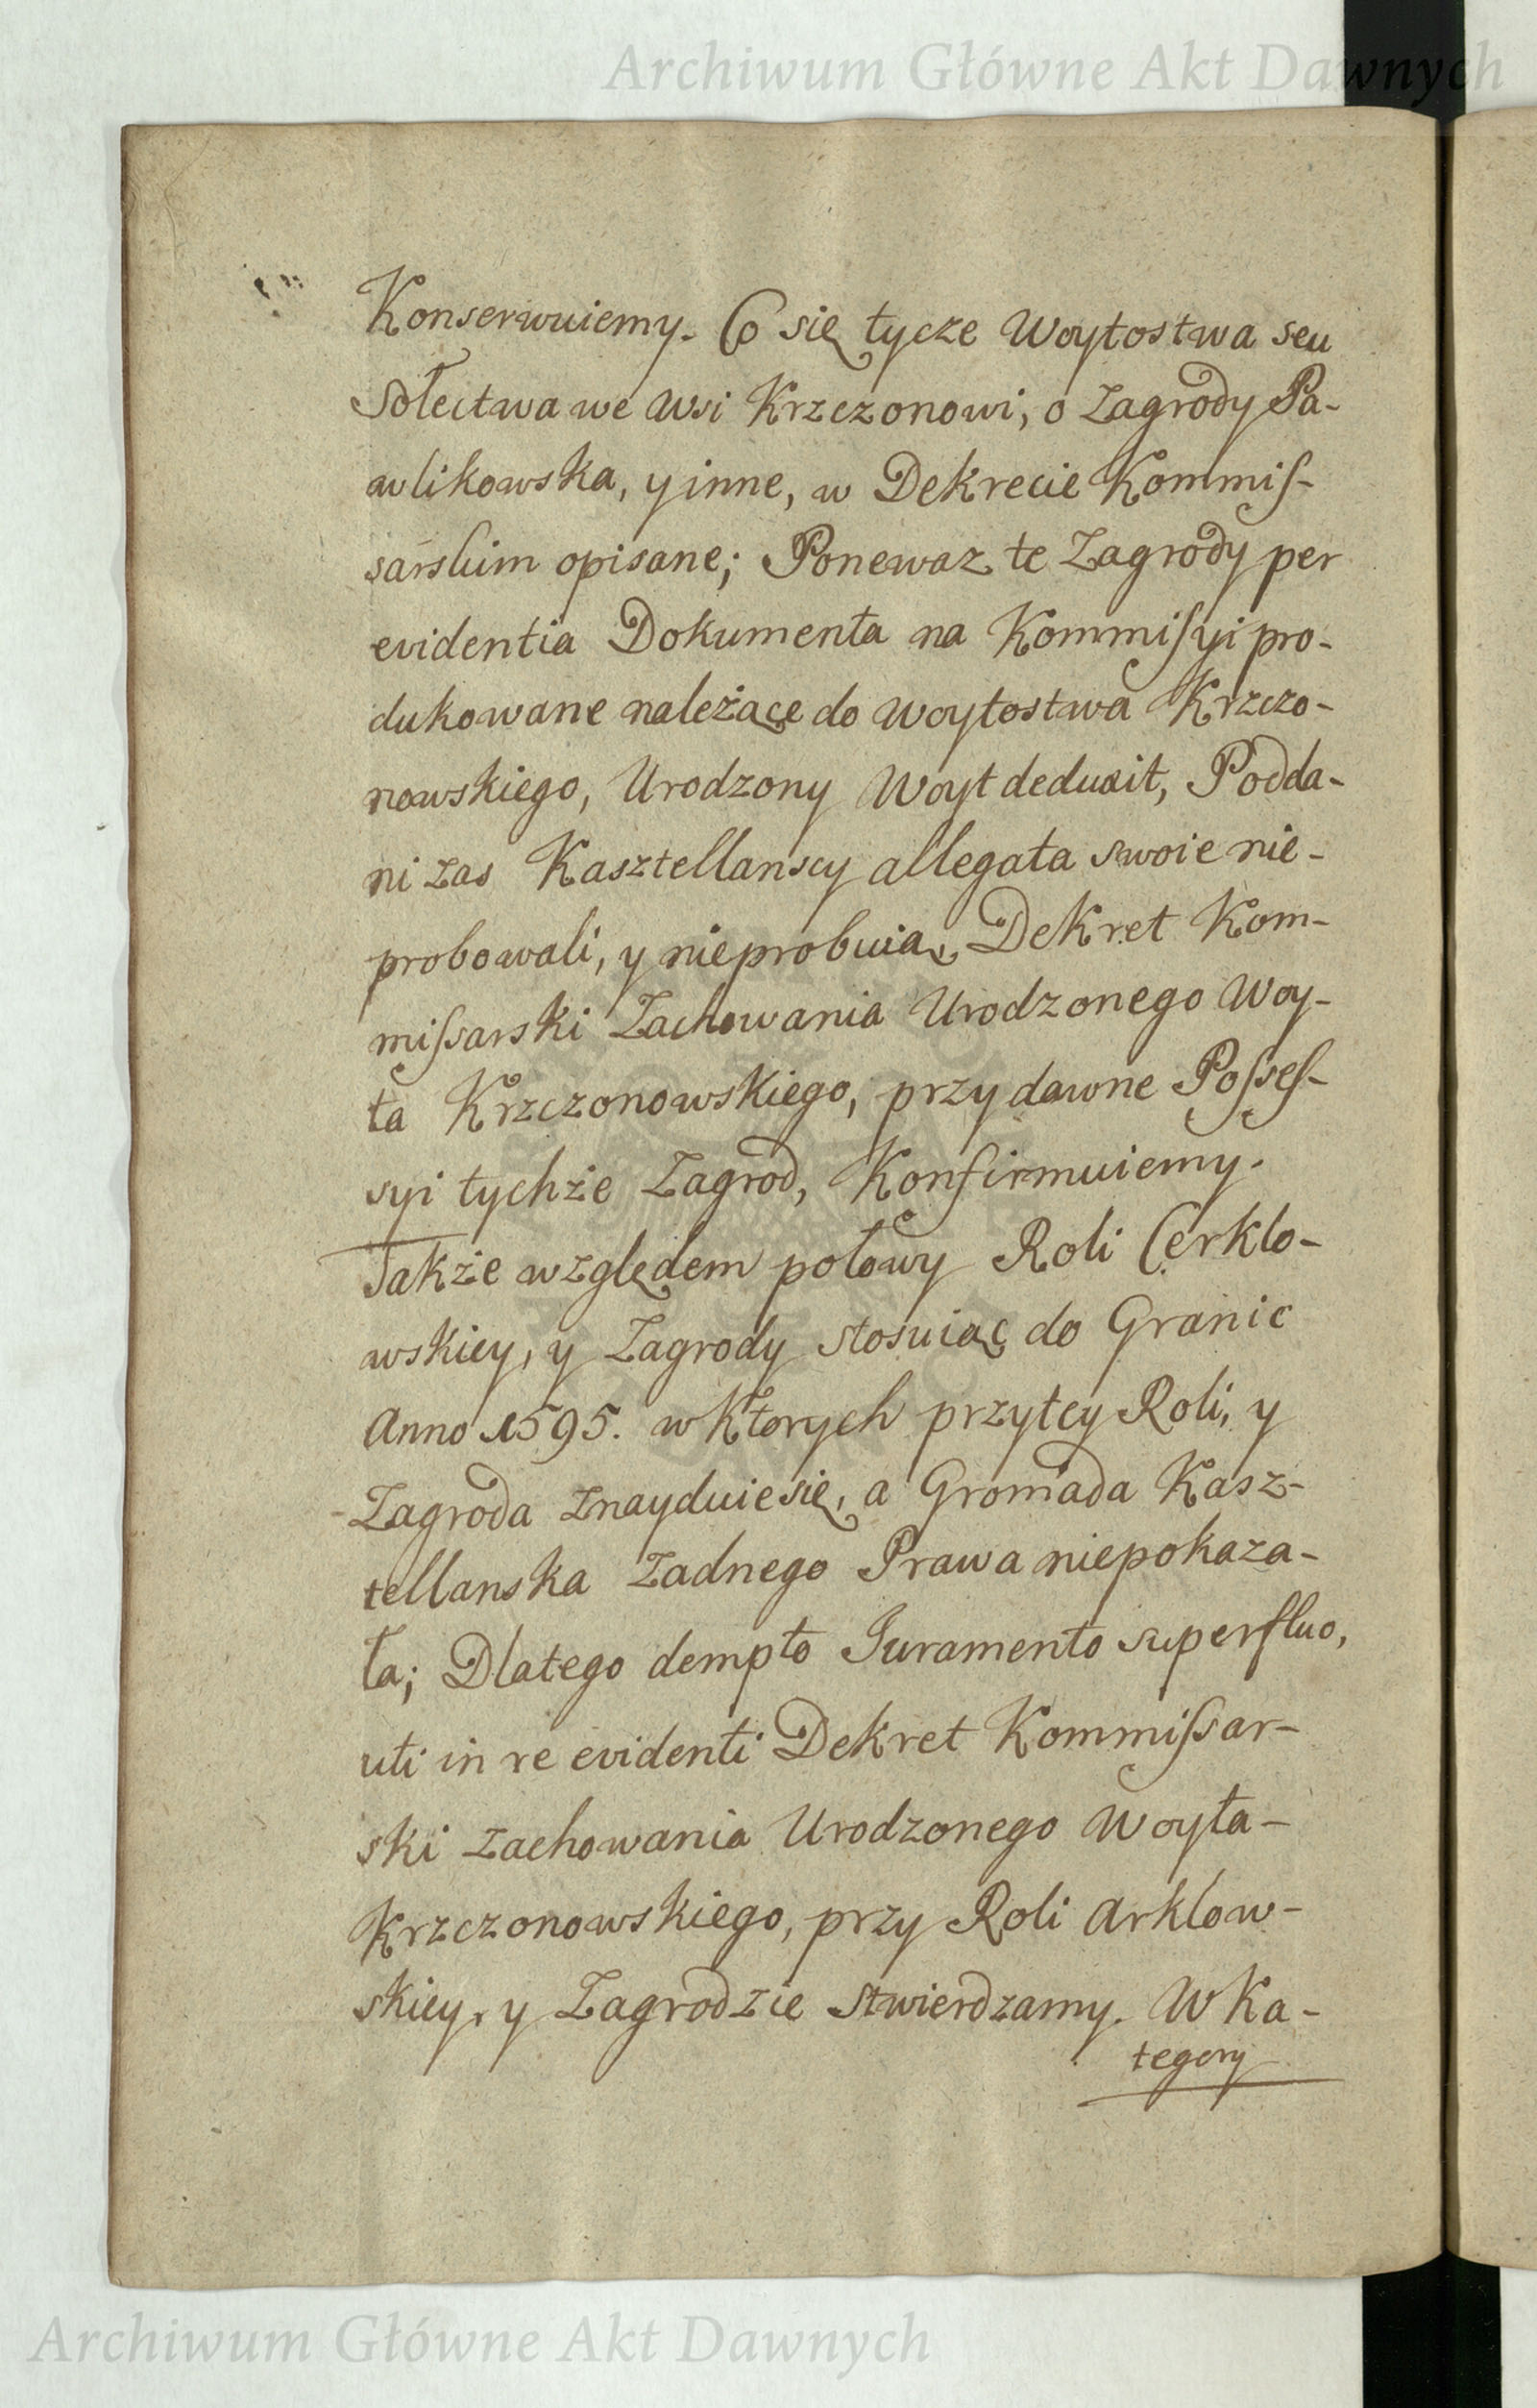 Archiwum Główne Akt Dawnych
Konserwuiemy. Co się tycze Woytostwa seu
Sołectwa we Wsi Krzczonowi, o Zagrody Pa-
wlikowska, y inne, w Dekrecie Kommiſ-
sarskim opisane; Ponewaz te Zagrody per
evidentia Dokumenta na Kommiſyi pro-
dukowane należące do Woytostwa Krzczo-
nowskiego, Urodzony Woyt deduxit, Podda-
ni zas Kasztellanscy allegata swoie nie-
probowali, y nieprobuią, Dekret Kom-
miſsarski Zachowania Urodzonego Woy-
ta Krzczonowskiego, przy dawne Poſseſ-
syi tychże Zagrod, Konfirmuiemy.
Także względem połowy Roli Cerklo-
wskiey, y Zagrody stosuiąc do Granic
Anno 1595. w Ktorych przytey Roli, y
Zagroda znayduie się, a Gromada Kasz-
tellanska Zadnego Prawa niepokaza-
ła; Dlatego dempto Juramento superfluo,
uti in re evidenti Dekret Kommiſsar-
ski zachowania Urodzonego Woyta-
Krzczonowskiego, przy Roli Arklow-
skiey, y Zagrodzie stwierdzamy. W Ka-
tegory
Archiwum Główne Akt Dawnych